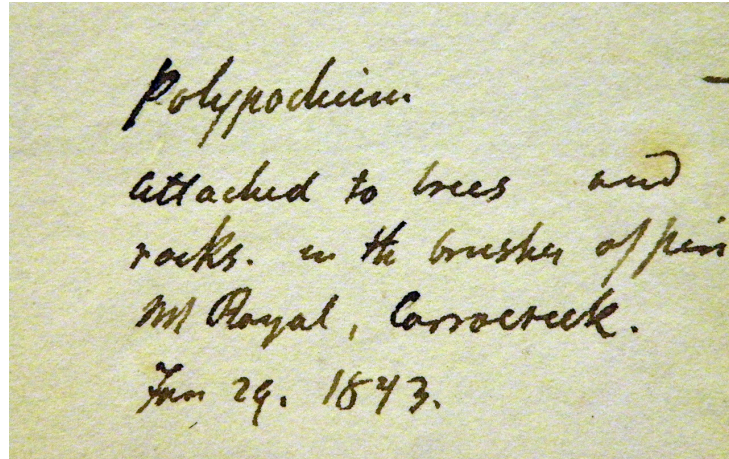 Polypodium
attached to trees and
rocks. in the brushes of
Mt Royal,
Jan 29. 1843.